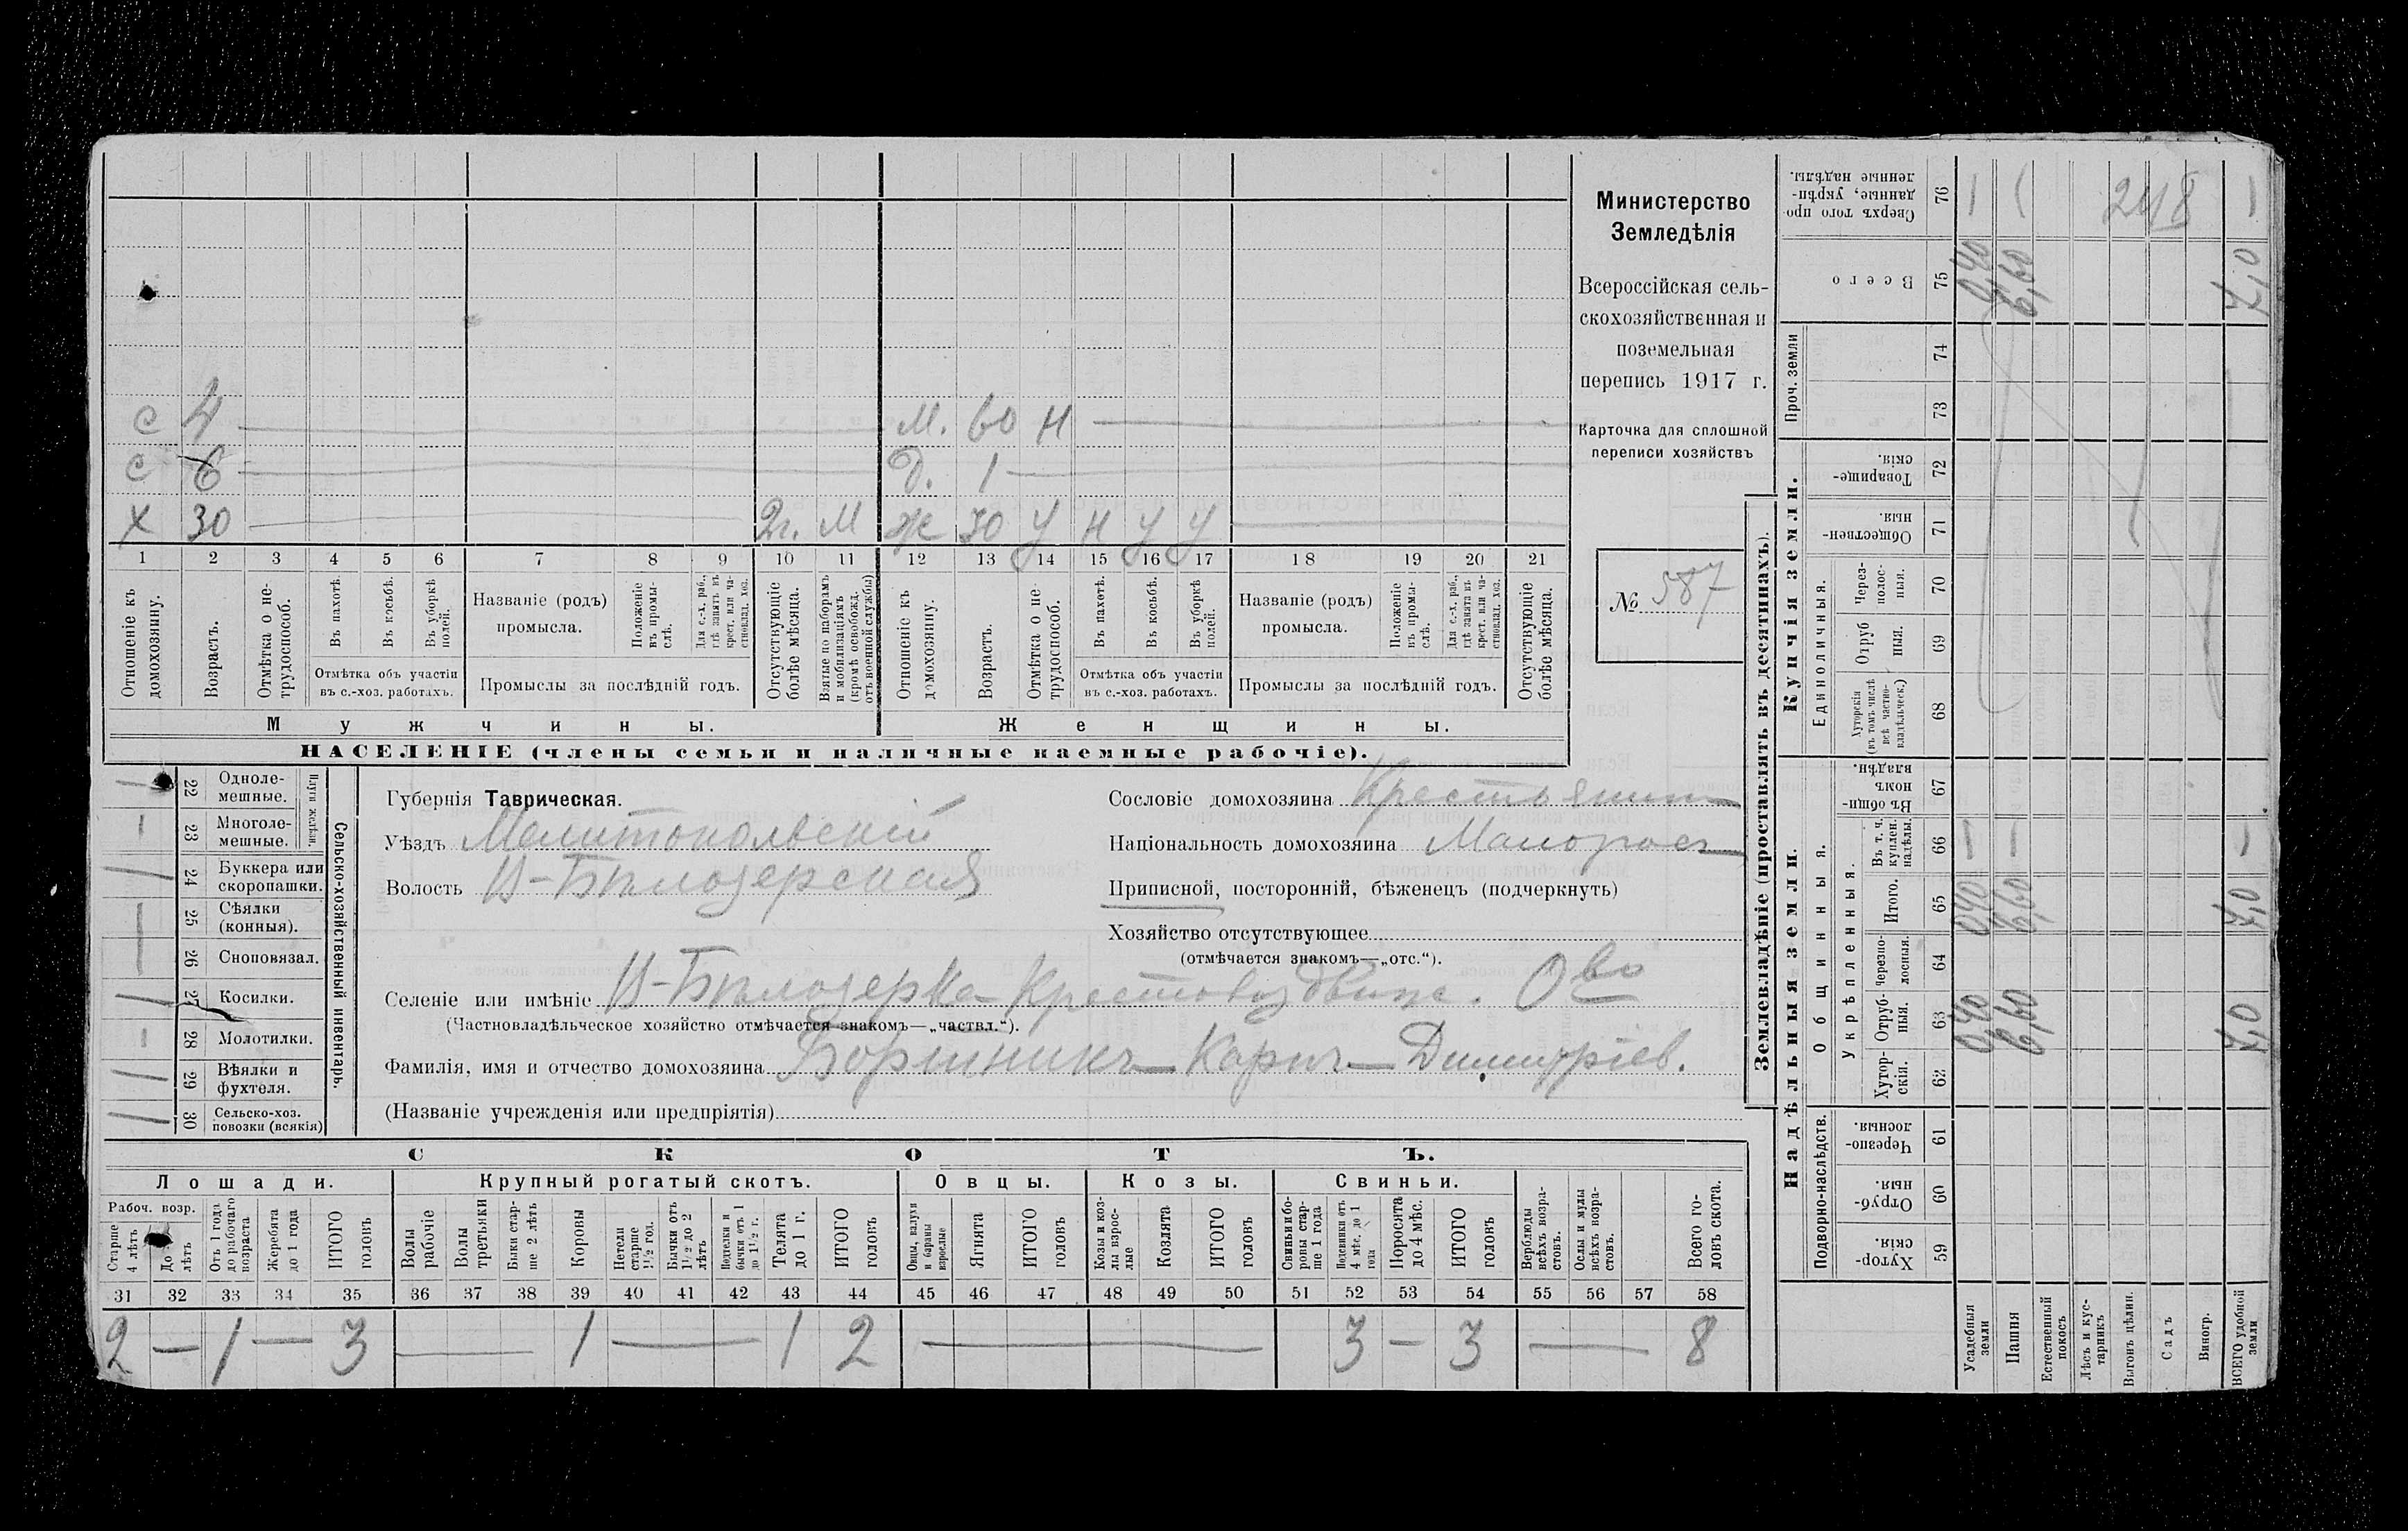 С 4 М. 60 Н
С 6 Д. 1
Х 30 2г. М Ж 30 У Н У У
1 2 3 4 5 6 7 8 9 10 11 12 13 14 15 16 17 18 19 20 21
Отношеніе къ домохозяину.
Возрастъ.
Отмѣтка о нетрудоспособ.
Въ пахотѣ.
Въ косьбѣ.
Въ уборкѣ полей.
Отмѣтка объ участіи въ с.-хоз. работахъ.
Названіе (родъ) промысла.
Положеніе въ промыслѣ.
Для с.-х. раб., гдѣ занятъ въ крест. или частновлад. хоз.
Промыслы за послѣдній годъ.
Отсутствующіе болѣе мѣсяца.
Взятые по наборамъ и мобилизаціямъ (кромѣ освобожд. отъ военной службы)
Отношеніе къ домохозяину.
Возрастъ.
Отмѣтка о нетрудоспособ.
Въ пахотѣ.
Въ косьбѣ.
Въ уборкѣ полей.
Отмѣтка объ участіи въ с.-хоз. работахъ.
Названіе (родъ) промысла.
Положеніе въ промыслѣ.
Для с.-х. раб., гдѣ занята въ крест. или частновлад. хоз.
Промыслы за послѣдній годъ.
Отсутствующіе болѣе мѣсяца.
Мужчины. Женщины.
НАСЕЛЕНІЕ (члены семьи и наличные наемные рабочіе).
Министерство
Земледѣлія
Всероссійская сель-
скохозяйственная и
поземельная
перепись 1917 г.
Карточка для сплошной
переписи хозяйствъ
№ 587
22 Одноле-мешные.
23 Многоле-мешные.
Плуги желѣзн.
24 Буккера или скоропашки.
25 Сѣялки (конныя).
26 Сноповязал.
27 Косилки.
28 Молотилки.
29 Вѣялки и фухтеля.
30 Сельско-хоз. повозки (всякія)
Сельско-хозяйственный инвентарь.
Губернія Таврическая.
Уѣздъ Мелитопольскій
Волость В-Бѣлозерская
Сословіе домохозяина Крестьянин
Національность домохозяина Малоросс
Приписной, посторонній, бѣженецъ (подчеркнуть)
Хозяйство отсутствующее
(отмѣчается знакомъ—„отс.“).
Селеніе или имѣніе В-Бѣлозерка Крестовоздвиж. О-во
(Частновладѣльческое хозяйство отмѣчается знакомъ—„частвл.“).
Фамилія, имя и отчество домохозяина Карпъ Димитріев.
(Названіе учрежденія или предпріятія)
СКОТЪ.
Лошади. Крупный рогатый скотъ. Овцы. Козы. Свиньи.
Рабоч. возр.
Старше 4 лѣтъ
До лѣтъ
Отъ 1 года до рабочаго возраста
Жеребята до 1 года
ИТОГО головъ
Волы рабочіе
Волы третьяки
Быки старше 2 лѣтъ
Коровы
Нетели старше 1½ год.
Бычки отъ 1½ до 2 лѣтъ
Подтелки и бычки отъ 1 до 1½ г.
Телята до 1 г.
ИТОГО головъ
Овцы, валухи и бараны взрослые
Ягнята
ИТОГО головъ
Козы и козлы взрослые
Козлята
ИТОГО головъ
Свиньи и боровы старше 1 года
Подсвинки отъ 4 мѣс. до 1 года
Поросята до 4 мѣс.
ИТОГО головъ
Верблюды всѣхъ возрастовъ.
Ослы и мулы всѣхъ возрастовъ.
Всего головъ скота.
31 32 33 34 35 36 37 38 39 40 41 42 43 44 45 46 47 48 49 50 51 52 53 54 55 56 57 58
2 — 1 — 3 — 1 — 1 2 — 3 — 3 — 8
Землевладѣніе (проставлять въ десятинахъ).
Купчія земли.
Надѣльныя земли.
Сверхъ того проданные, укрѣпленные надѣлы. 76 248
Всего 75 0,40 6,60 7,0
Проч. земли 74 73
Товарищескія. 72
Общественныя. 71
Единоличныя.
Черезполосныя. 70
Отрубныя. 69
Хуторскія (въ томъ числѣ всѣ частновладѣльческ.) 68
Общинныя.
Въ общинномъ владѣн. 67
Укрѣпленныя.
Въ т. ч. куплен. надѣлы. 66
Итого. 65 0,40 6,60 7,0
Черезполосныя. 64
Отрубныя. 63 0,40 6,60 7,0
Хуторскія. 62
Подворно-наслѣдств.
Черезполосныя. 61
Отрубныя. 60
Хуторскія. 59
Усадебныя земли
Пашня
Естественный покосъ
Лѣсъ и кустарникъ
Выгонъ цѣлин.
Садъ
Виногр.
ВСЕГО удобной земли